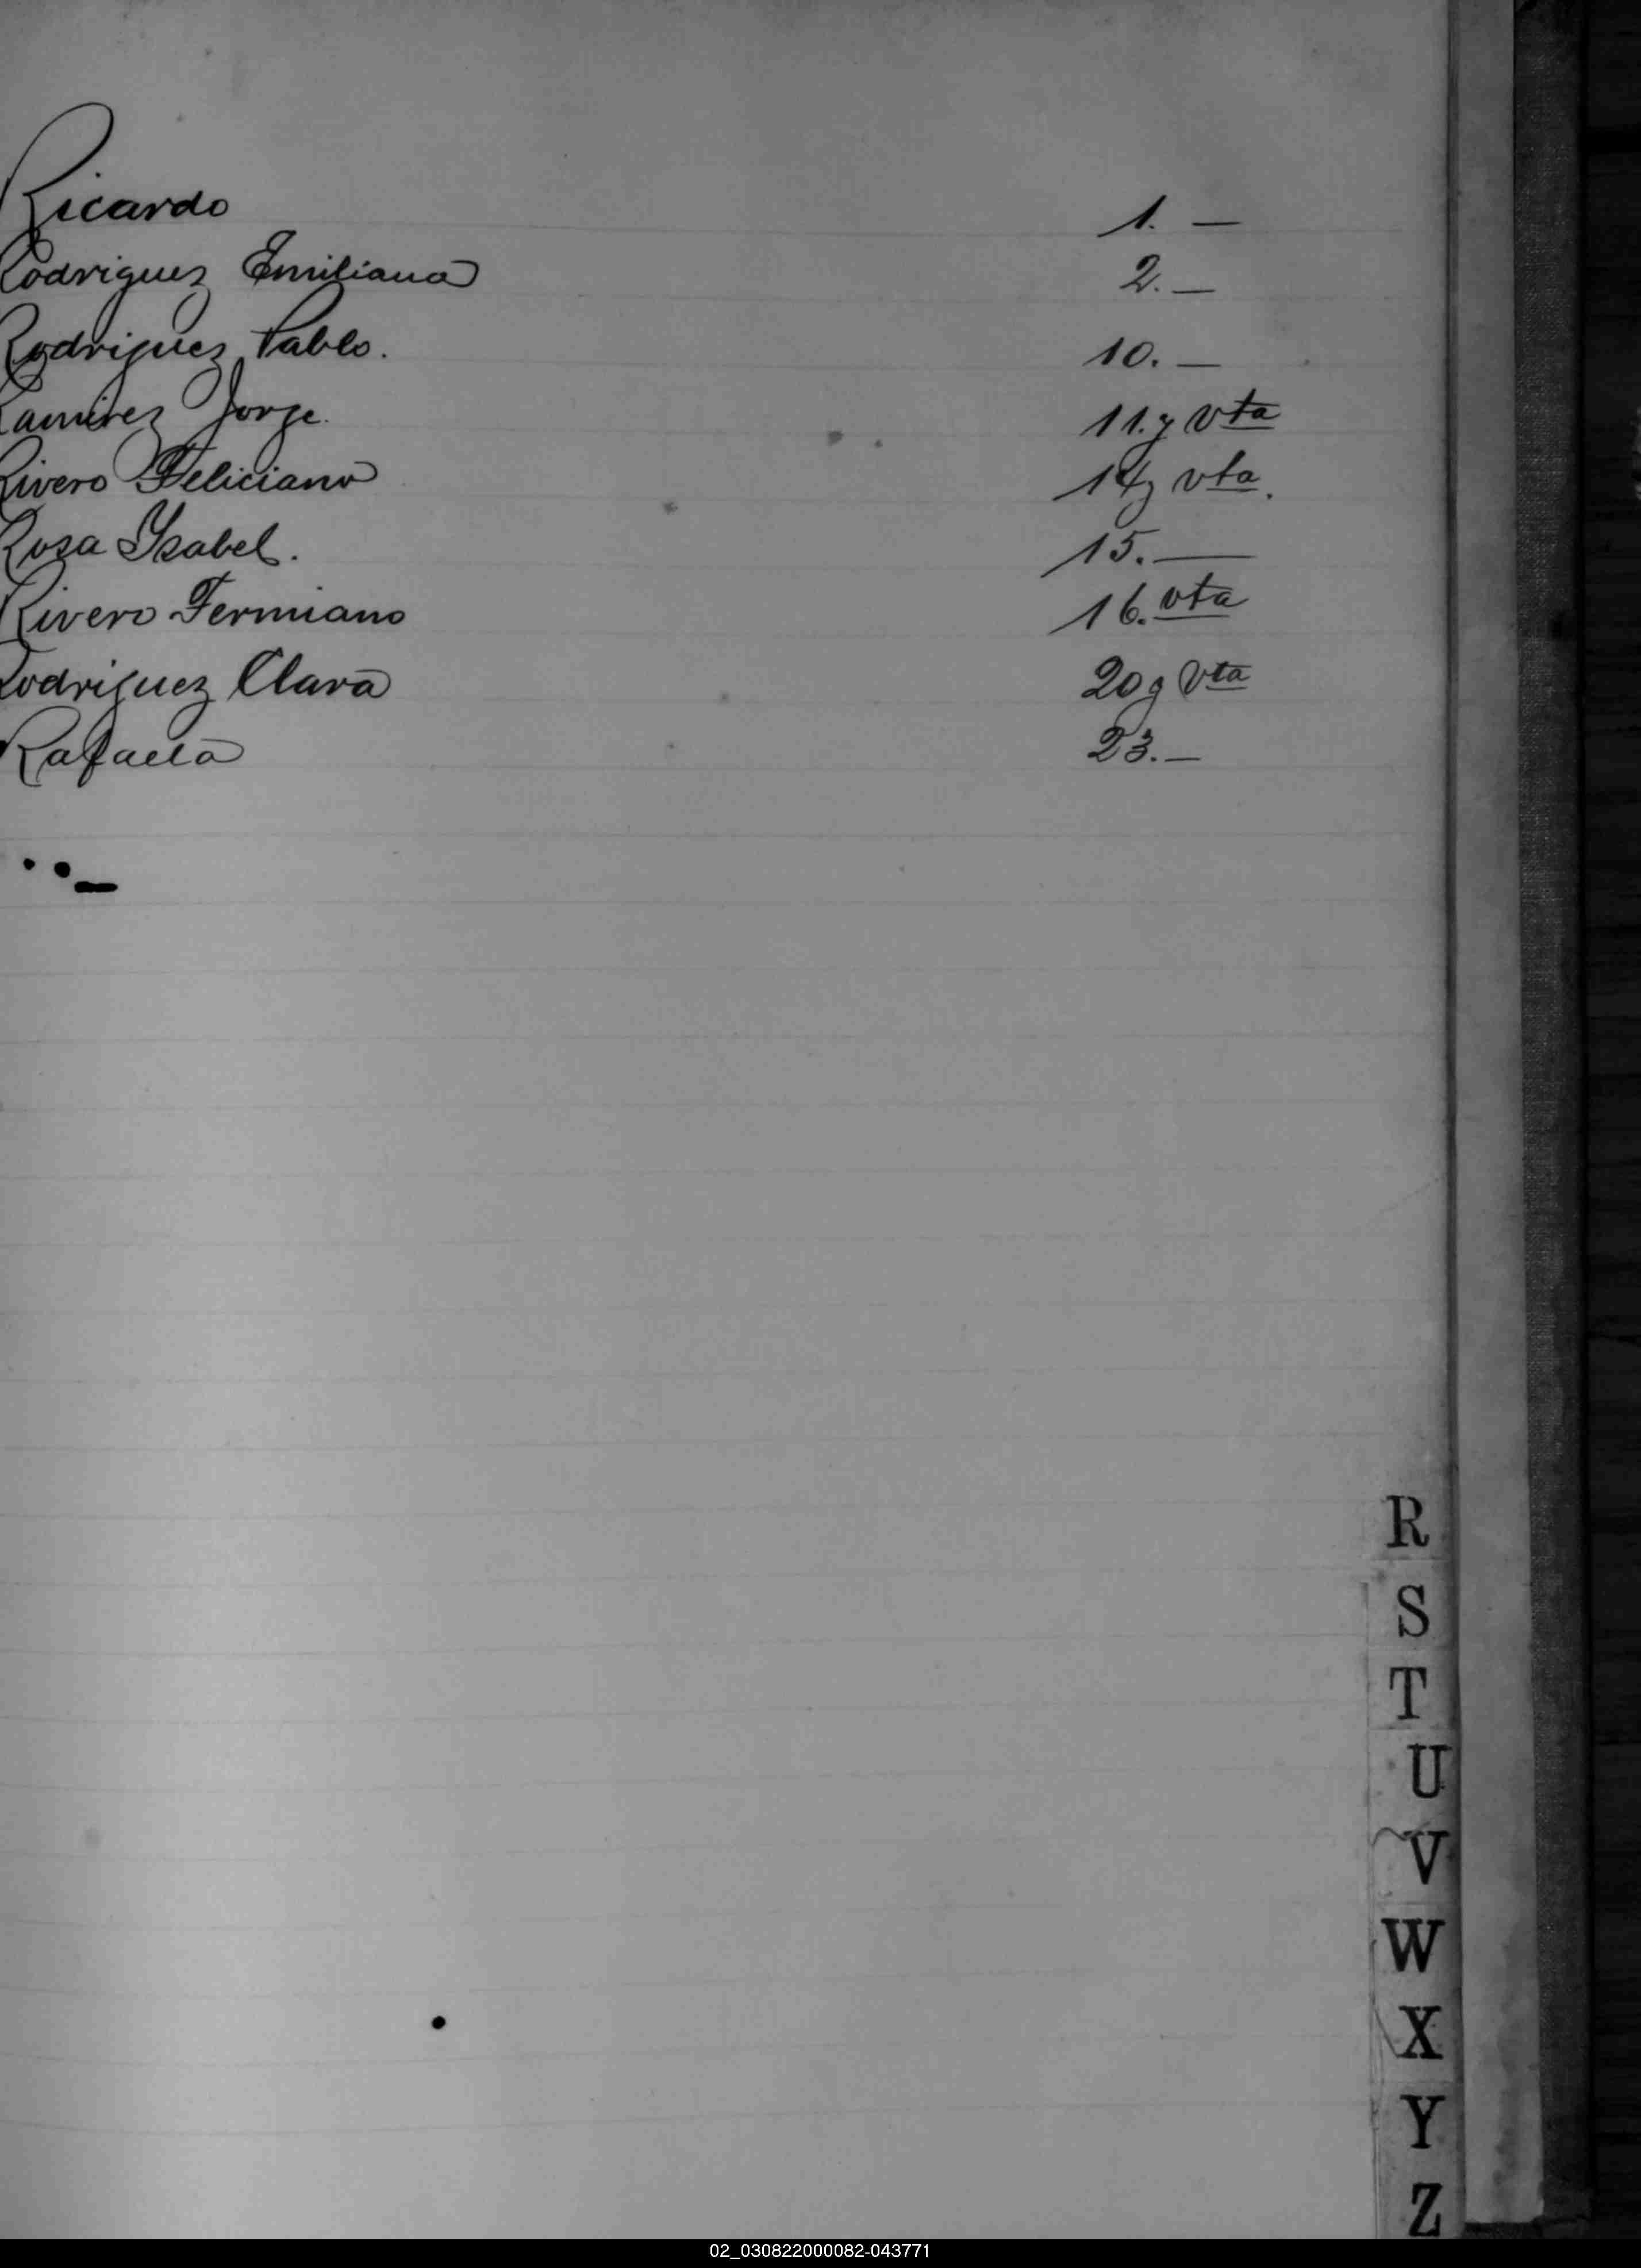 Ricardo 1. —
Rodriguez Emiliana 2. —
Rodriguez Pablo. 10. —
Ramirez Jorge. 11. y vta
Rivero Feliciano 14 y vta.
Rosa Ysabel. 15. —
Rivero Fermiano 16. vta
Rodriguez Clara 20 y vta
Rafaela 23. —
R
S
T
U
V
W
X
Y
Z
02_030822000082-043771